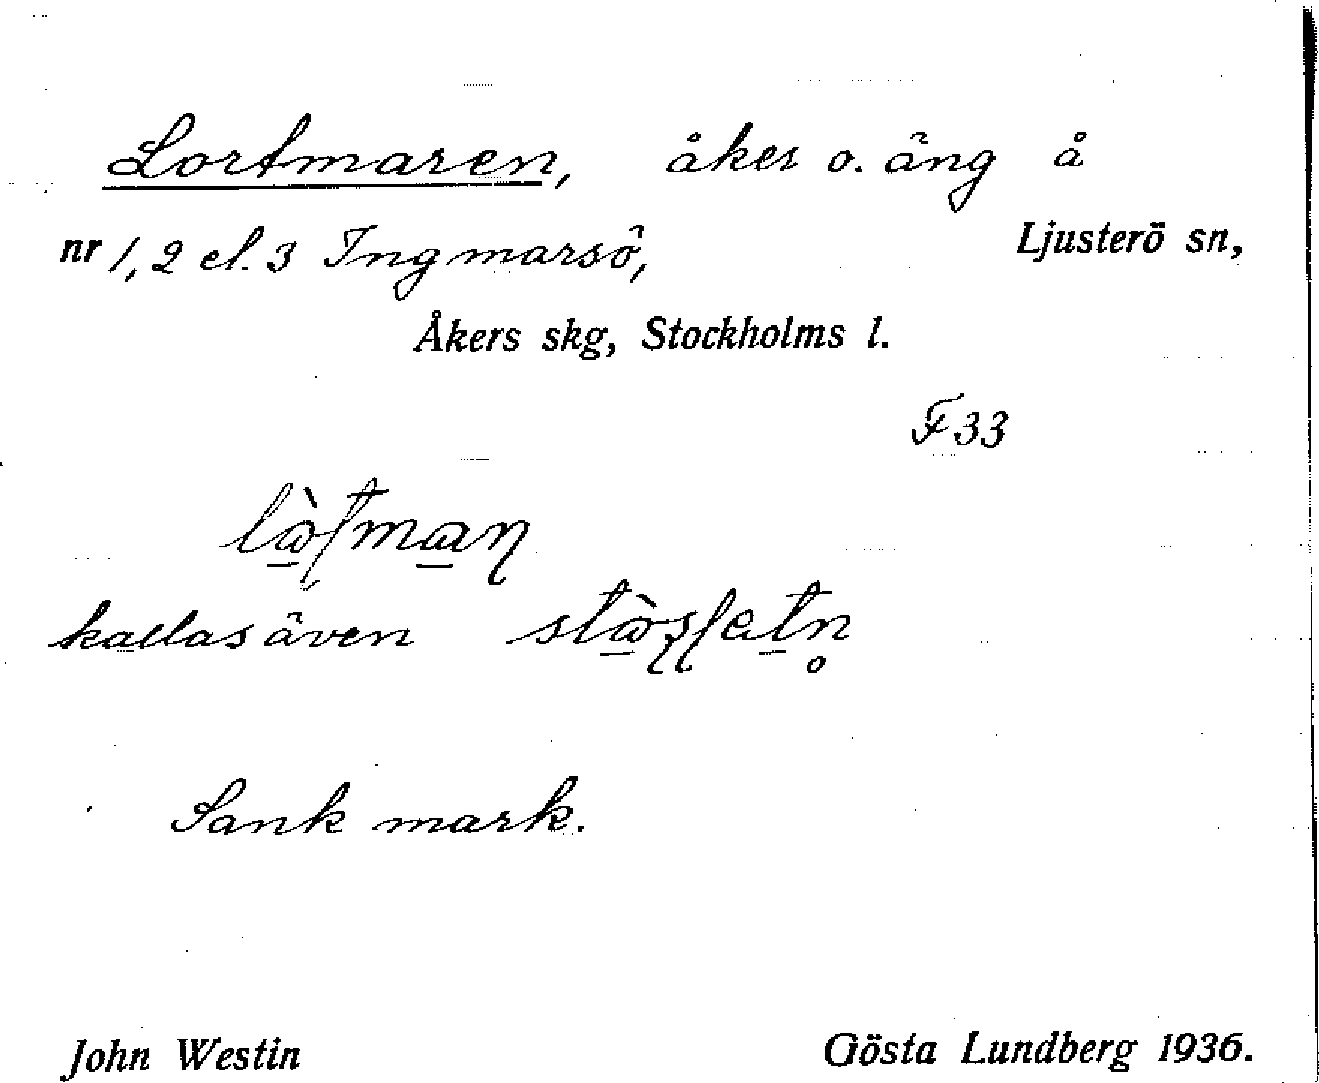 Lortmaren, åker o. äng å
nr 1, 2 el. 3 Ingmarsö, Ljusterö sn,
Åkers skg, Stockholms l.
F 33
kallas även
Sank mark.
John Westin Gösta Lundberg 1936.